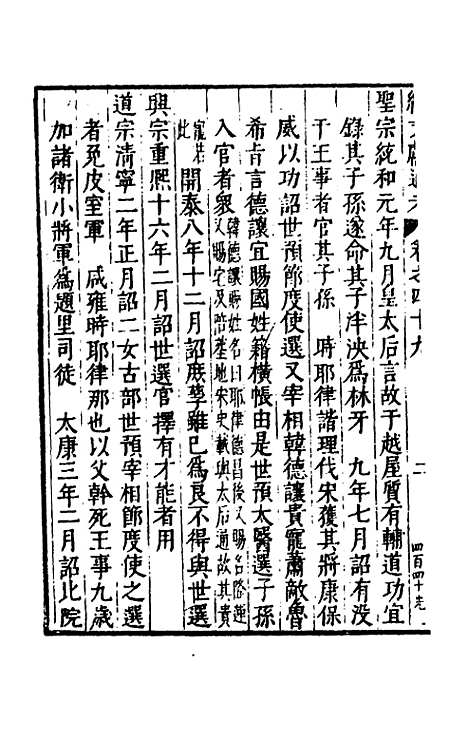 續文獻通考 卷之四十九 二 四百四十
聖宗統和元年九月皇太后言故于越屋質有輔道功宜
錄其子孫遂命其子泮泱爲林牙　九年七月詔有没
于王事者官其子孫　時耶律諧理代宋獲其將康保
威以功詔世預節度使選又宰相韓德讓貴寵蕭敵魯
希旨言德讓宜賜國姓籍橫帳由是世預太醫選子孫
入官者衆韓德讓時姓名曰耶律德昌後又賜名隆運又賜宅及陪葬地宋史載與太后通故其貴
寵若此開泰八年十二月詔庶孽雖已爲良不得與世選
興宗重熙十六年二月詔世選官擇有才能者用
道宗清寧二年正月詔二女古部世預宰相節度使之選
者免皮室軍　咸雍時耶律那也以父幹死王事九歲
加諸衛小將軍爲題里司徒　太康三年二月詔北院